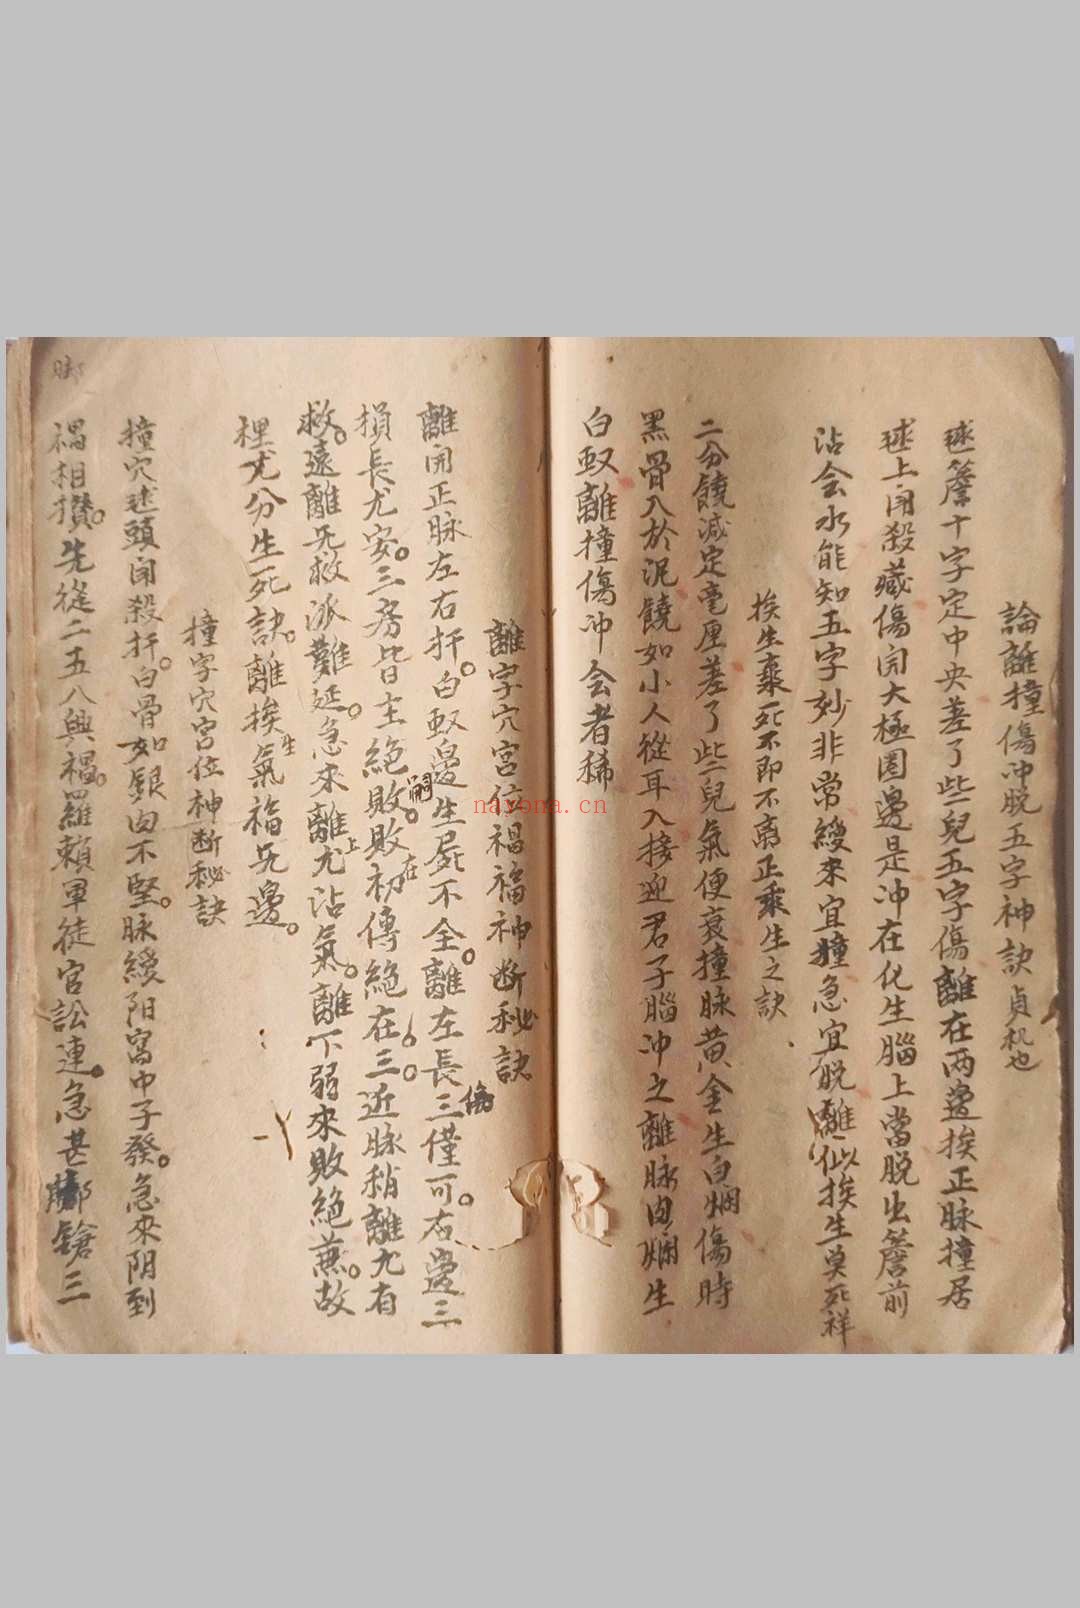 論離撞傷冲脱五字神訣貞机也
毬簷十字定中央差了些兒五字傷離在两邉挨正脉撞居
毬上鬥殺藏傷開大極圓邉是冲在化生腦上當脱出簷前
沾会水能知五字妙非常緩來宜撞急宜脱離似挨生莫死祥
挨生棄死不即不离正乘生之訣
二分饒减定毫厘差了些兒氣便衰撞脉黄金生白烟傷時
黑骨入於泥饒如小人從耳入接迎君子腦冲之離脉肉爛生
白蚁離撞傷冲会者稀
離字穴宫位禍福神断秘訣
離開正脉左右扦。白蚁邉生屍不全。離左長三僅可。右邉三
傷
損長尤安。三房皆主絶敗嗣。敗在初傳絶在三。近脉稍離尤有
救。遠離旡救派難延。急來離上尤沾氣。離下弱來敗絶蕪。故
裡尤分生死訣。離挨生氣福旡邉。
撞字穴宫位神断秘訣
撞穴迷頭鬥殺扦。白骨如銀肉不堅。脉緩阳窩中子發。急來阴到
禍相攢。先從二五八興禍。羅賴軍徒官訟連。急甚腳鎗三
腳
nayona.cn